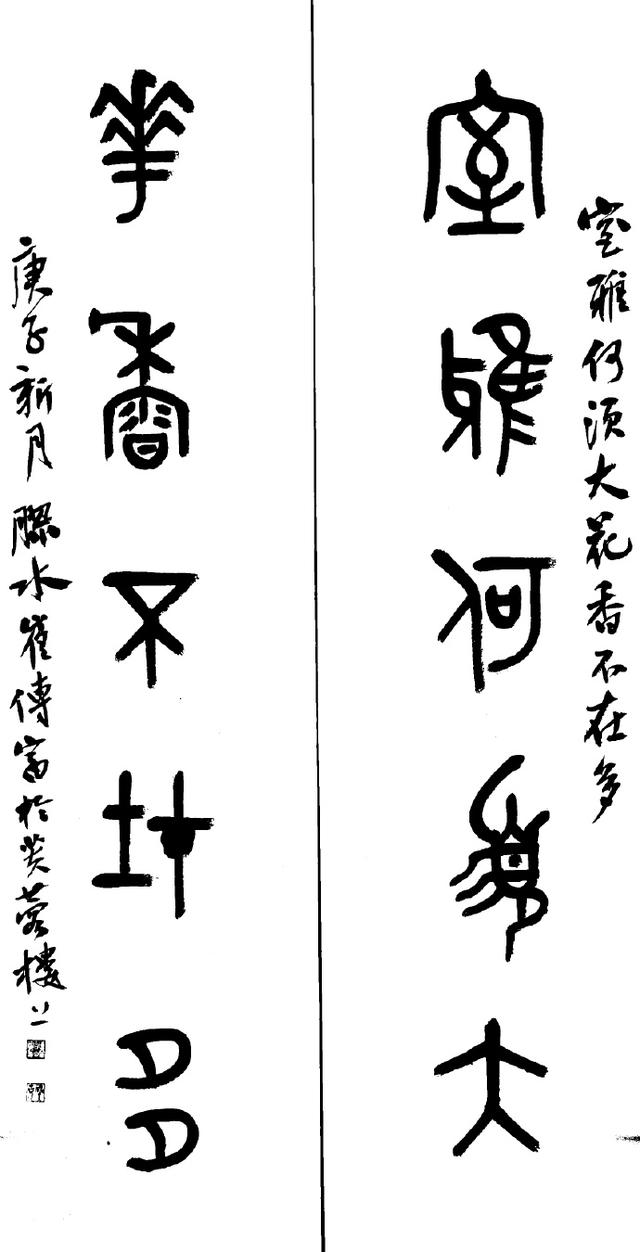 室雅何須大花香不在多
室雅何須大
華香不在多
庚子新月膠水崔傳富於芙蓉樓上